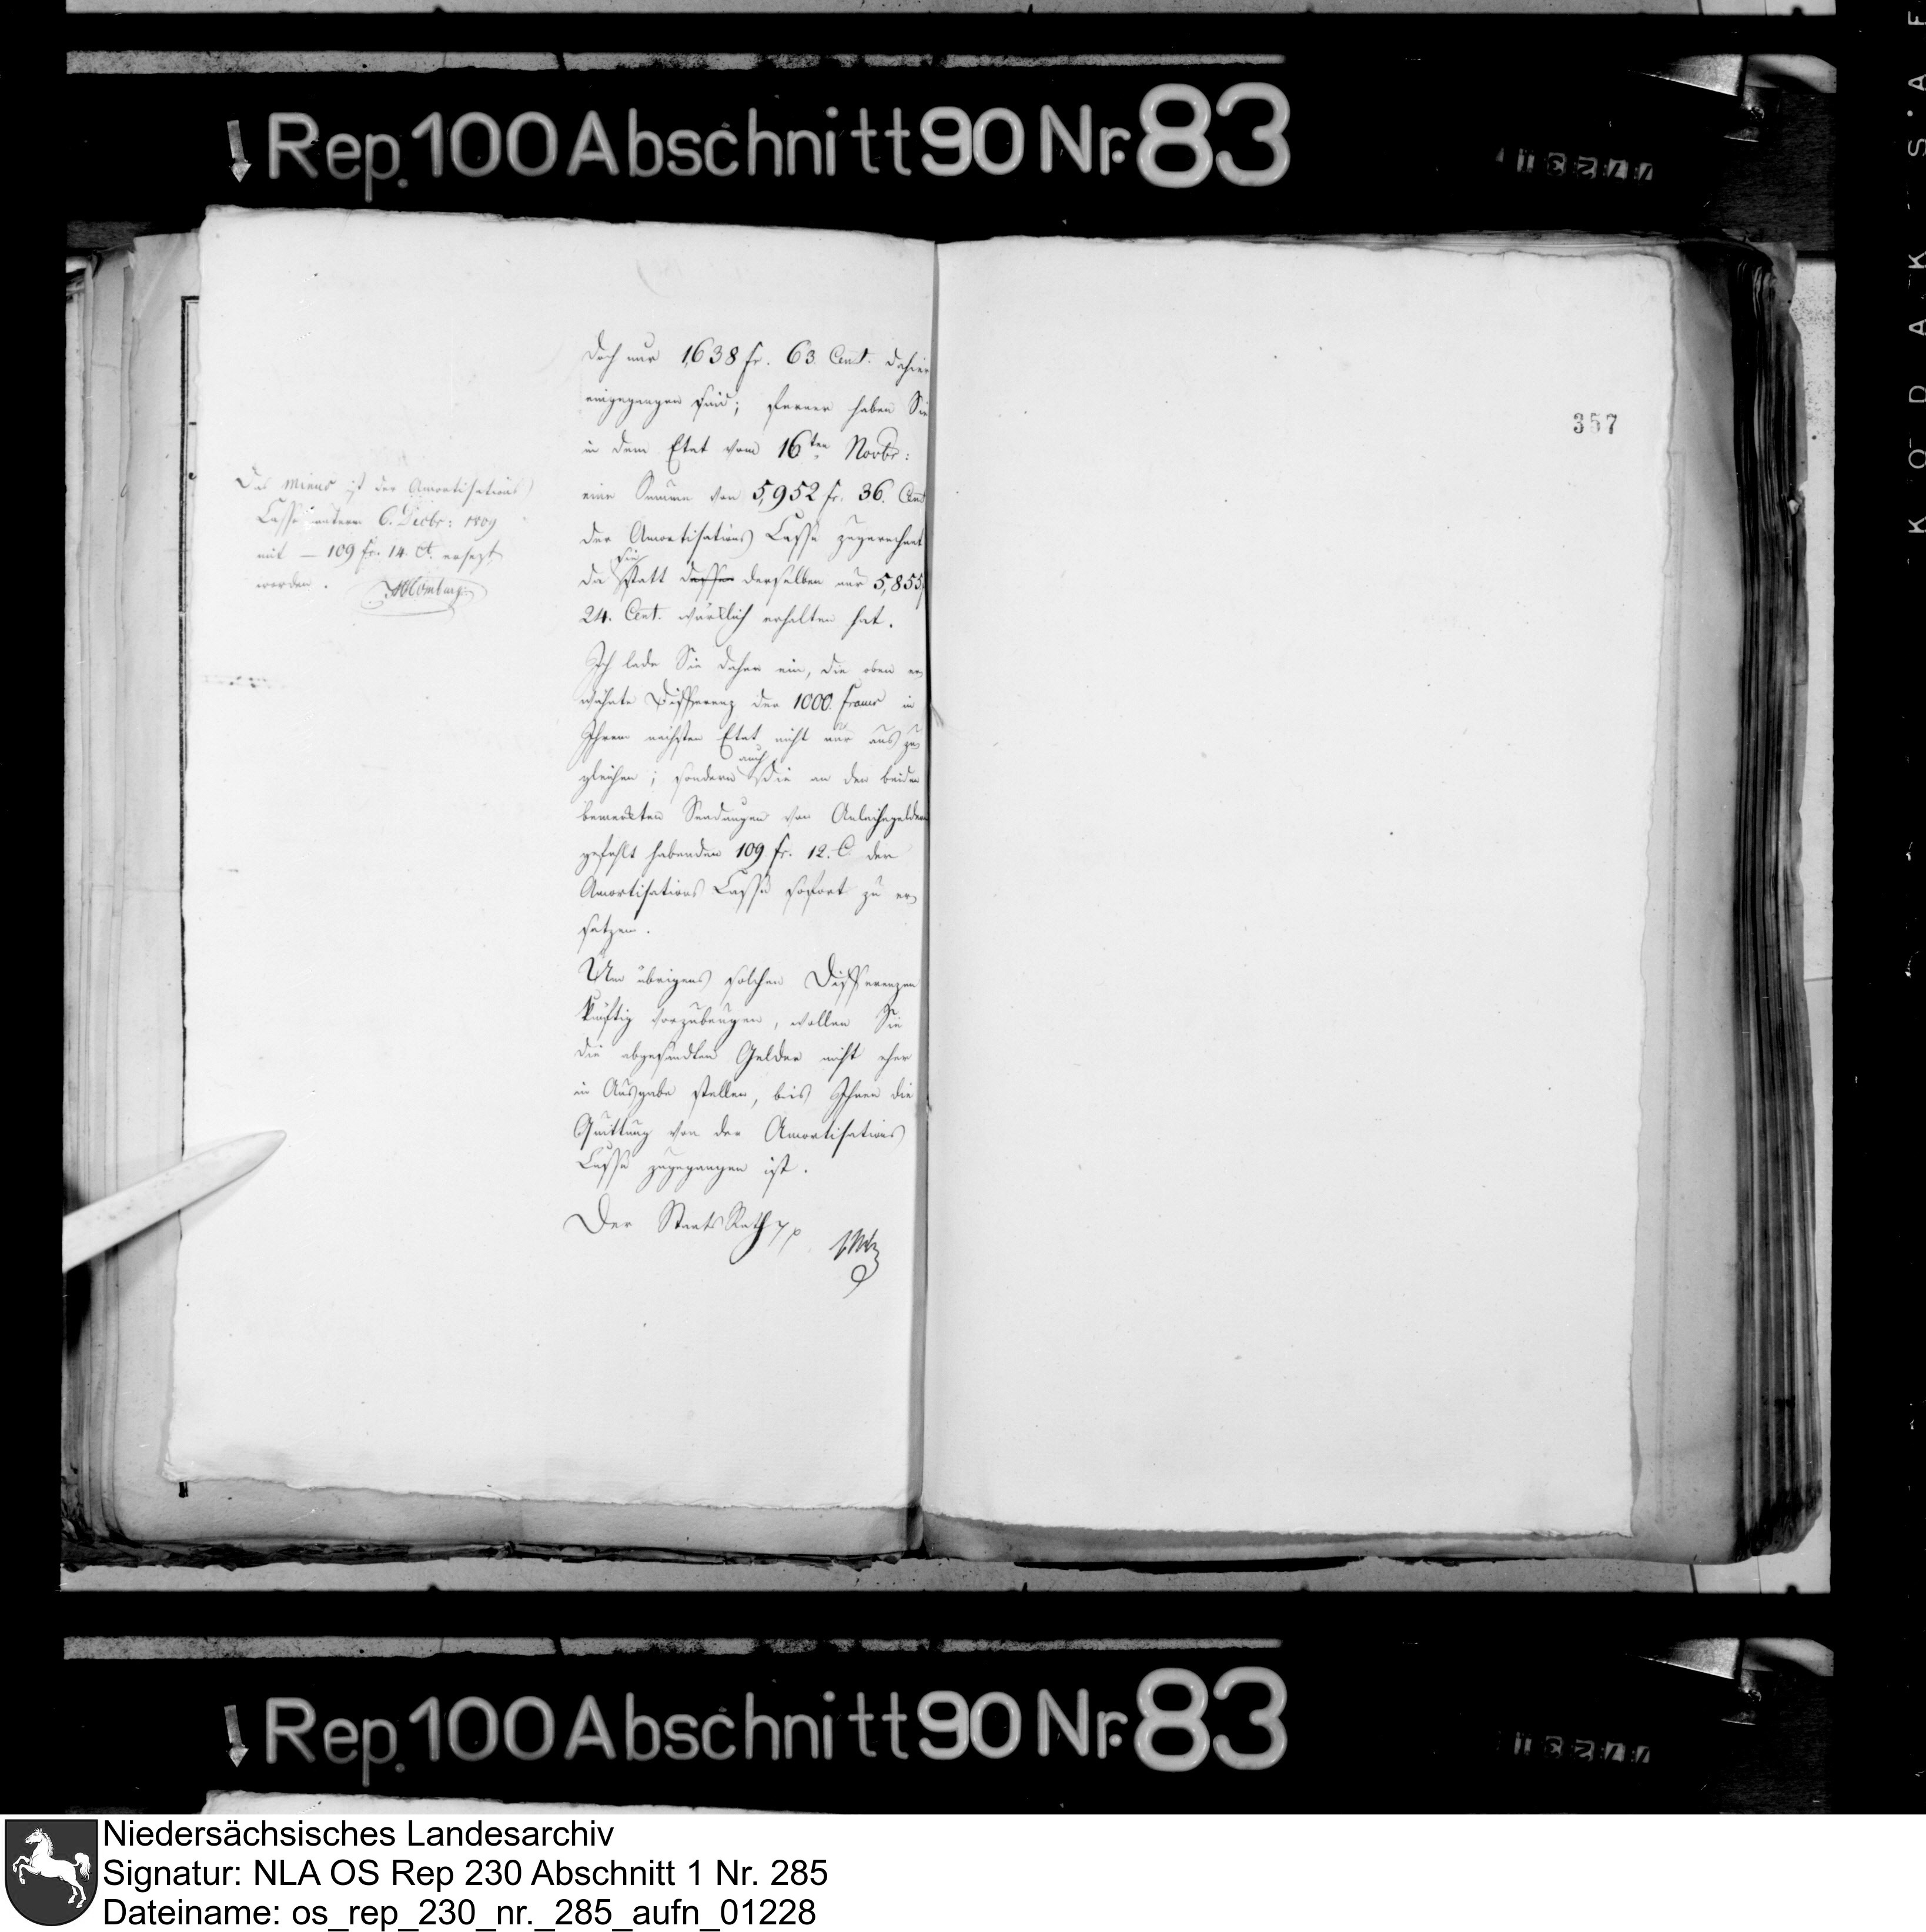 Rep. 100 Abschnitt 90 Nr. 83
357
doch nur 1638 fr. 63. Cent. dahier
eingegangen sind; ferner haben Sie
in dem Etat vom 16ten Novbr:
eine Summe von 5,952 fr. 36. Cent
der Amortisations Casse zugerechnet
da sie statt dessen derselben nur 5,855
24. Cent. würklich erhalten hat.
Ich lade Sie daher ein, die oben er
wähnte Differenz der 1000. Francs in
Ihrem nächsten Etat nicht nur aus zu
gleichen; sondern auch die an den beiden
bemerkten Sendungen von Anleihegeldern
gefehlt habenden 109. fr. 12. C. der
Amortisations Casse sofort zu er
setzen.
Um übrigens solchen Differenzen
künftig vorzubeugen, wollen Sie
die abgesandten Gelder nicht eher
in Ausgabe stellen, bis Ihnen die
Quittung von der Amortisations
Casse zugegangen ist.
Der Staats Rath
Das minus ist der Amortisations
Casse unterm 6. Decbr: 1809
mit — 109 fr. 14. Ct. ersezt
worden.
Rep. 100 Abschnitt 90 Nr. 83
Niedersächsisches Landesarchiv
Signatur: NLA OS Rep 230 Abschnitt 1 Nr. 285
Dateiname: os_rep_230_nr._285_aufn_01228